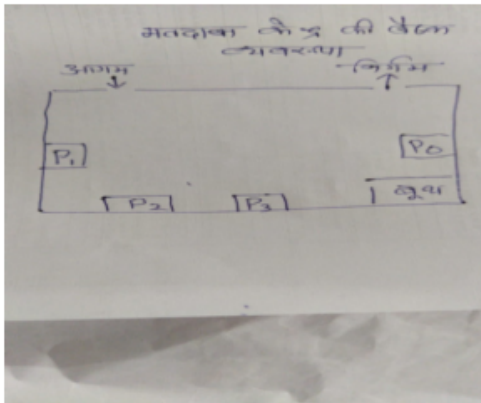 मतदाबा केन्द्र की बैठक
व्यवस्था
आगम
निर्गम
P1
PO
P2
P3
बूथ